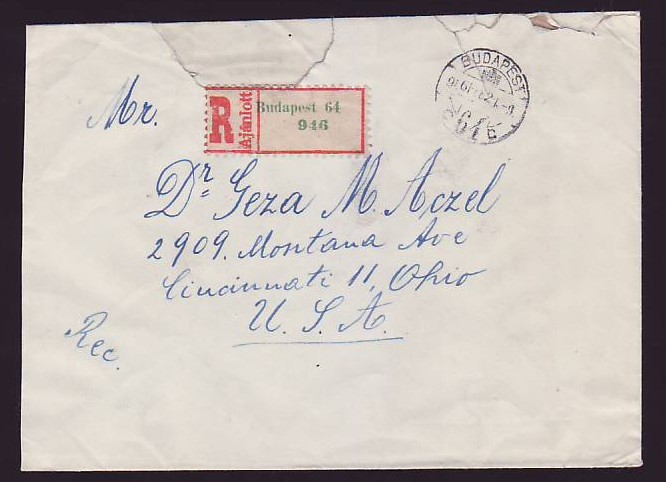 BUDAPEST
64
Mr.
R Ajánlott
Budapest 64
946
Dr Geza M. Aczel
2909. Montana Ave
Cincinnati 11, Ohio
U. S. A.
Rec.